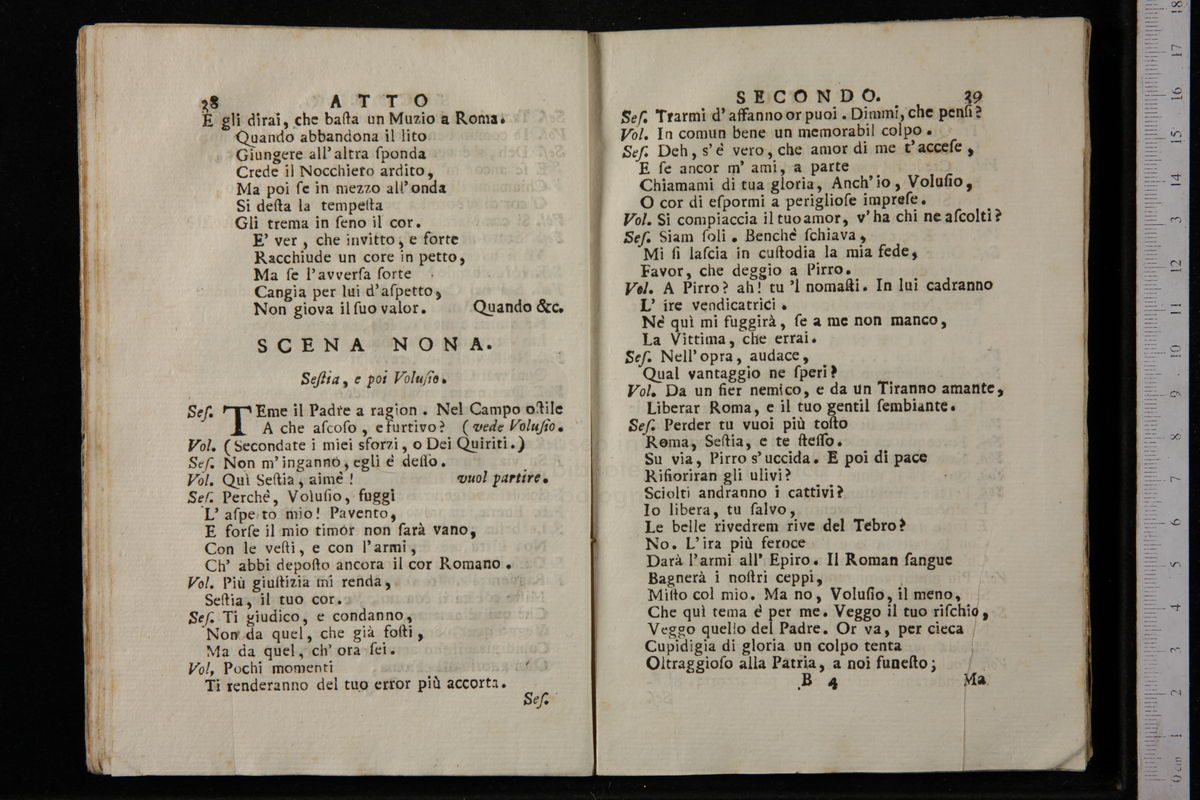 38 ATTO
E gli dirai, che baſta un Muzio a Roma.
Quando abbandona il lito
Giungere all'altra ſponda
Crede il Nocchiero ardito,
Ma poi ſe in mezzo all'onda
Si deſta la tempeſta
Gli trema in ſeno il cor.
E' ver, che invitto, e forte
Racchiude un core in petto,
Ma ſe l'avverſa ſorte
Cangia per lui d'aſpetto,
Non giova il ſuo valor. Quando &c.
SCENA NONA.
Seſtia, e poi Voluſio.
Seſ. TEme il Padre a ragion. Nel Campo oſtile
A che aſcoſo, e furtivo? (vede Voluſio.
Vol. (Secondate i miei sforzi, o Dei Quiriti.)
Seſ. Non m'inganno, egli è deſſo.
Vol. Quì Seſtia, aimè! vuol partire.
Seſ. Perchè, Voluſio, fuggi
L' aſpetto mio! Pavento,
E forſe il mio timor non ſarà vano,
Con le veſti, e con l'armi,
Ch' abbi depoſto ancora il cor Romano.
Vol. Più giuſtizia mi renda,
Seſtia, il tuo cor.
Seſ. Ti giudico, e condanno,
Non da quel, che già foſti,
Ma da quel, ch' ora ſei.
Vol, Pochi momenti
Ti renderanno del tuo error più accorta.
Seſ.
SECONDO. 39
Seſ. Trarmi d'affanno or puoi. Dimmi, che penſi?
Vol. In comun bene un memorabil colpo.
Seſ. Deh, s'è vero, che amor di me t'acceſe,
E ſe ancor m' ami, a parte
Chiamami di tua gloria, Anch'io, Voluſio,
O cor di eſpormi a periglioſe impreſe.
Vol. Si compiaccia il tuo amor, v'ha chi ne aſcolti?
Seſ. Siam ſoli. Benchè ſchiava,
Mi ſi laſcia in cuſtodia la mia fede,
Favor, che deggio a Pirro.
Vol. A Pirro? ah! tu 'l nomaſti. In lui cadranno
L' ire vendicatrici.
Nè quì mi fuggirà, ſe a me non manco,
La Vittima, che errai.
Seſ. Nell'opra, audace,
Qual vantaggio ne ſperi?
Vol. Da un fier nemico, e da un Tiranno amante,
Liberar Roma, e il tuo gentil ſembiante.
Seſ. Perder tu vuoi più toſto
Roma, Seſtia, e te ſteſſo.
Su via, Pirro s'uccida. E poi di pace
Rifioriran gli ulivi?
Sciolti andranno i cattivi?
Io libera, tu ſalvo,
Le belle rivedrem rive del Tebro?
No. L'ira più feroce
Darà l'armi all' Epiro. Il Roman ſangue
Bagnerà i noſtri ceppi,
Miſto col mio. Ma no, Voluſio, il meno,
Che quì tema è per me. Veggo il tuo riſchio,
Veggo quello del Padre. Or va, per cieca
Cupidigia di gloria un colpo tenta
Oltraggioſo alla Patria, a noi funeſto;
B 4 Ma